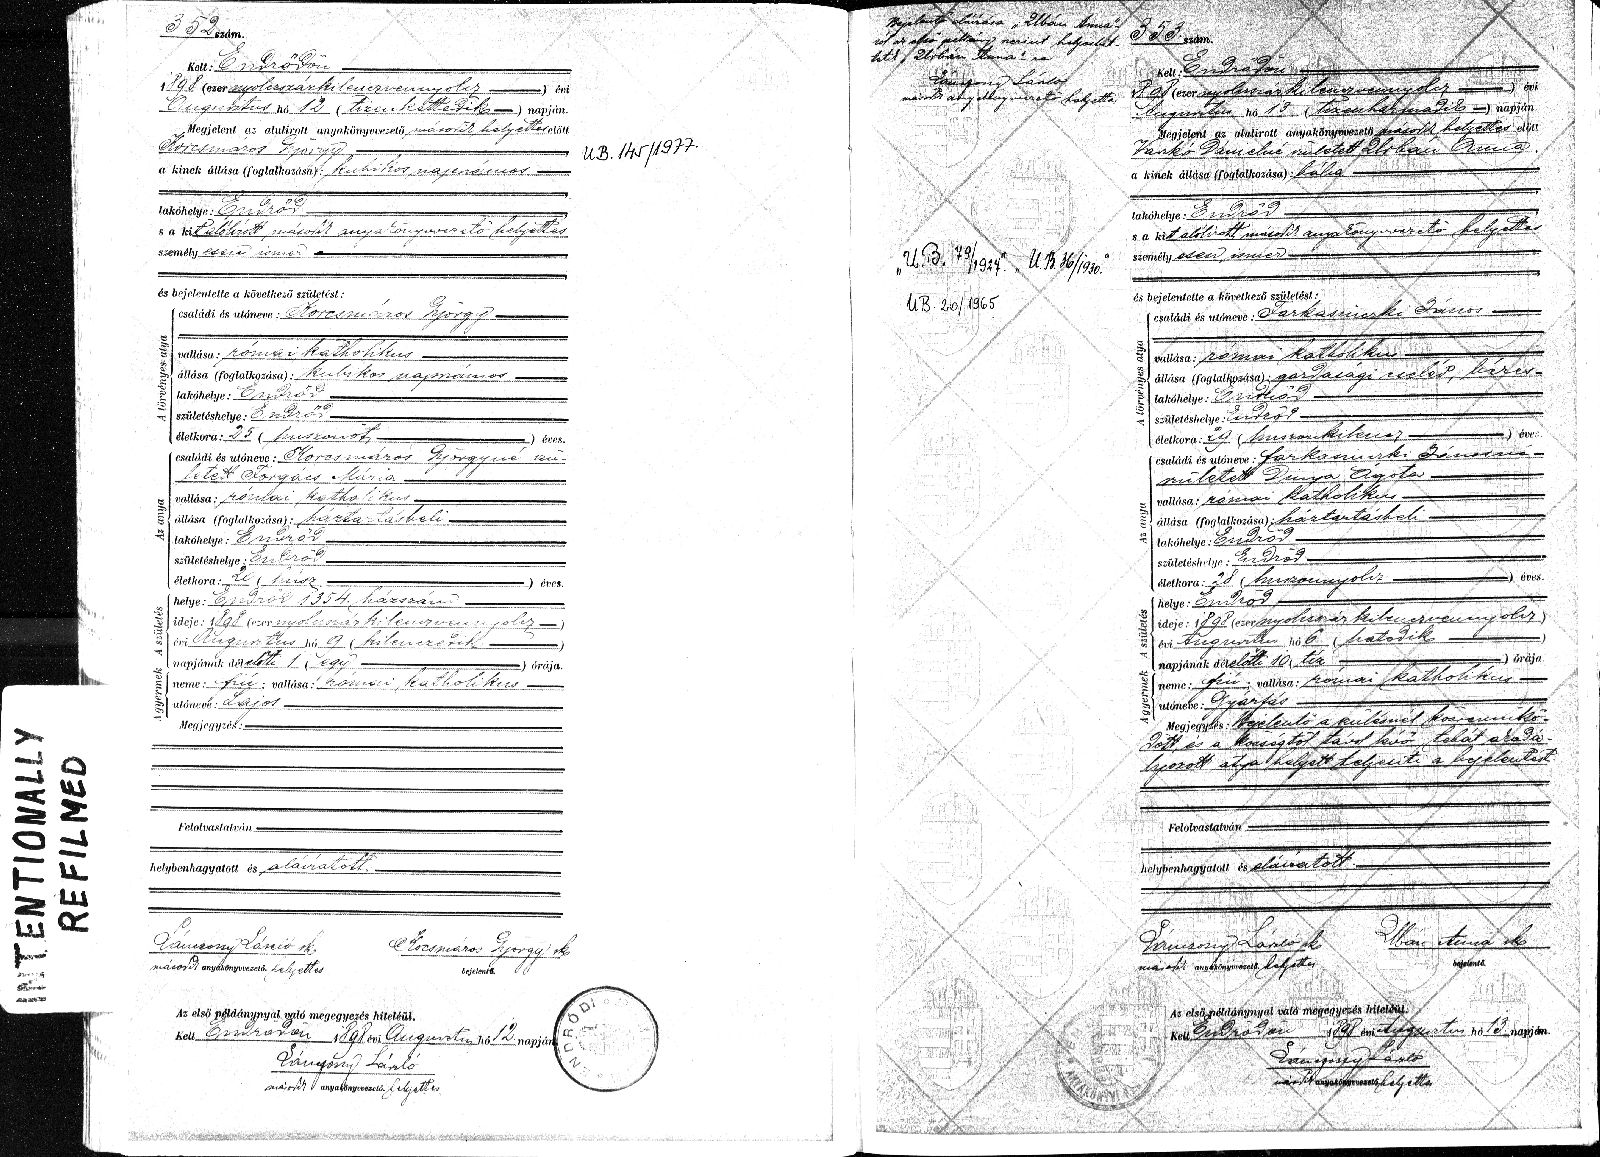 INTENTIONALLY
REFILMED
352 szám.
Kelt: Endrődön
1898 (ezer nyolczszázkilenczvennyolcz) évi
Augusztus hó 12 (tizenkettedik) napján.
Megjelent az alulirott anyakönyvvezető másodh. helyettes előtt
Korcsmáros György
a kinek állása (foglalkozása): kubikos, napszámos
lakóhelye: Endrőd
s a kit alólirott másodh anyakönyvvezető helyettes
személyesen ismer
és bejelentette a következő születést:
A törvényes atya
családi és utóneve: Korcsmáros György
vallása: római katholikus
állása (foglalkozása): kubikos napszámos
lakóhelye: Endrőd
születéshelye: Endrőd
életkora: 25 (huszonöt) éves.
Az anya
családi és utóneve: Korcsmáros Györgyné szü-
letett Forgács Mária
vallása: római katholikus
állása (foglalkozása): háztartásbeli
lakóhelye: Endrőd
születéshelye: Endrőd
életkora: 20 (húsz) éves.
A születés
helye: Endrőd 1354 házszám
ideje: 1898 (ezer nyolczszázkilenczvennyolcz)
évi Augusztus hó 9 (kilenczedik)
napjának délelőtti 1 (egy) órája.
A gyermek
neme: fiú; vallása: római katholikus
utóneve: Lajos
Megjegyzés:
Felolvastatván
helybenhagyatott és aláiratott.
Lánczony László sk. Korcsmáros György sk
másodh anyakönyvvezető. helyettes bejelentő.
Az első példánynyal való megegyezés hiteléül.
Kelt Endrődön 1898 évi Augusztus hó 12 napján
Lánczony László
másodh anyakönyvvezető. helyettes
ENDRŐDI
UB. 145/1977.
Lánczony László
másodh anyakönyvvezető helyettes
"UB. 79/1924." "UB 36/1930."
UB. 20/1965
353 szám.
Kelt: Endrődön
1898 (ezer nyolczszázkilenczvennyolcz) évi
Augusztus hó 13 (tizenharmadik) napján
Megjelent az alulirott anyakönyvvezető másodh helyettes előtt
Dánielné született Urbán Anna
a kinek állása (foglalkozása): bába
lakóhelye: Endrőd
s a kit alólirott másodh anyakönyvvezető helyettes
személyesen ismer
és bejelentette a következő születést:
A törvényes atya
családi és utóneve: Farkasinszki János
vallása: római katholikus
állása (foglalkozása): gazdasági cseléd, béres
lakóhelye: Endrőd
születéshelye: Endrőd
életkora: 29 (huszonkilencz) éves
Az anya
családi és utóneve: Farkasinszki Jánosné
született Dinya Ágota
vallása: római katholikus
állása (foglalkozása): háztartásbeli
lakóhelye: Endrőd
születéshelye: Endrőd
életkora: 28 (huszonnyolcz) éves.
A születés
helye: Endrőd
ideje: 1898 (ezer nyolczszázkilenczvennyolcz)
évi Augusztus hó 6 (hatodik)
napjának délelőtti 10 (tiz) órája
A gyermek
neme: fiú; vallása: római katholikus
utóneve: Gyárfás
Megjegyzés: Bejelentő a szülésnél közremükö-
dött, és a községtől távol lévő, tehát akadá-
lyozott atya helyett teljesiti a bejelentést
Felolvastatván
helybenhagyatott és aláiratott.
Lánczony László sk Urbán Anna sk
másodh anyakönyvvezető. helyettes bejelentő.
Az első példánynyal való megegyezés hiteléül.
Kelt Endrődön 1898 évi Augusztus hó 13 napján.
Lánczony László
másodh anyakönyvvezető. helyettes